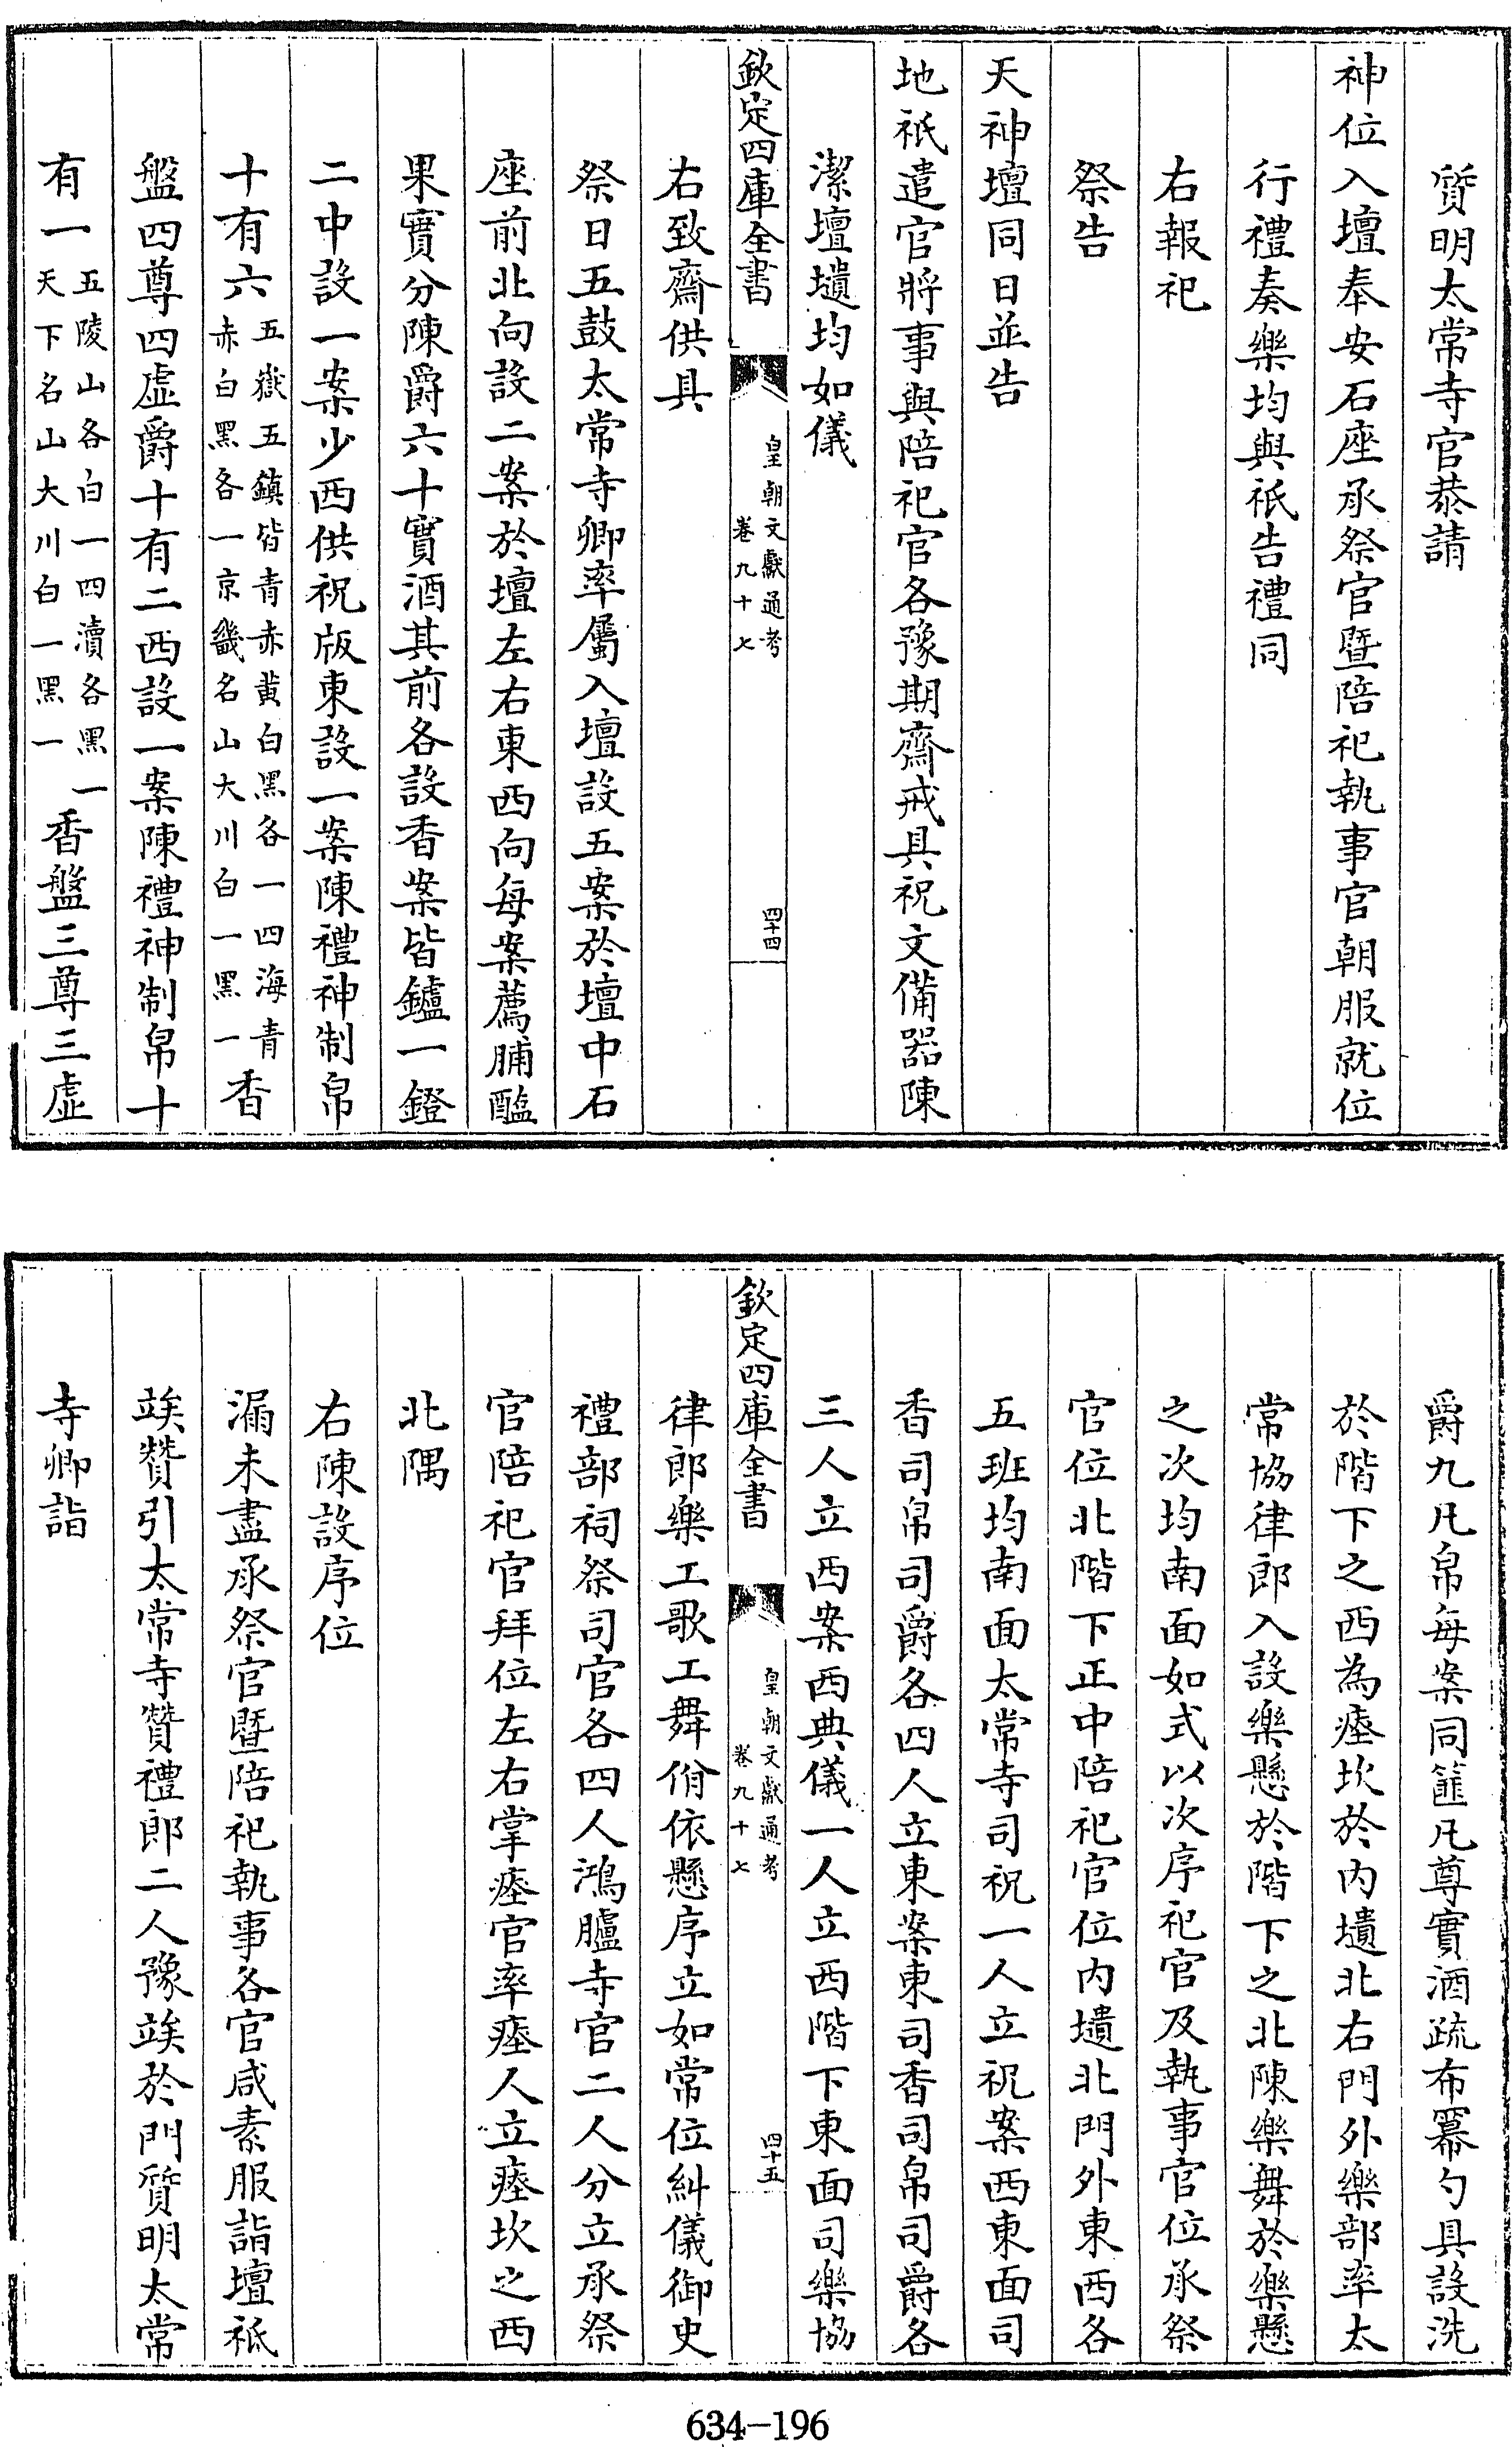 質明太常寺官恭請
神位入壇奉安石座承祭官暨陪祀執事官朝服就位
行禮奏樂均與祇告禮同
右報祀
祭告
天神壇同日並告
地祇遣官將事與陪祀官各豫期齋戒具祝文備器陳
潔壇壝均如儀
欽定四庫全書
皇朝文獻通考
卷九十七
四十四
右致齋供具
祭日五鼓太常寺卿率屬入壇設五案於壇中石
座前北向設二案於壇左右東西向每案薦脯醢
果實分陳爵六十實酒其前各設香案皆鑪一鐙
二中設一案少西供祝版東設一案陳禮神制帛
十有六五嶽五鎮皆青赤黄白黑各一四海青
赤白黑各一京畿名山大川白一黑一香
盤四尊四虛爵十有二西設一案陳禮神制帛十
有一五陵山各白一四瀆各黑一
天下名山大川白一黑一香盤三尊三虛
爵九凡帛每案同篚凡尊實酒疏布冪勺具設洗
於階下之西為瘞坎於內壝北右門外樂部率太
常協律郎入設樂懸於階下之北陳樂舞於樂懸
之次均南面如式以次序祀官及執事官位承祭
官位北階下正中陪祀官位內壝北門外東西各
五班均南面太常寺司祝一人立祝案西東面司
香司帛司爵各四人立東案東司香司帛司爵各
三人立西案西典儀一人立西階下東面司樂協
欽定四庫全書
皇朝文獻通考
卷九十七
四十五
律郎樂工歌工舞佾依懸序立如常位糾儀御史
禮部祠祭司官各四人鴻臚寺官二人分立承祭
官陪祀官拜位左右掌瘞官率瘞人立瘞坎之西
北隅
右陳設序位
漏未盡承祭官暨陪祀執事各官咸素服詣壇祗
竢贊引太常寺贊禮郎二人豫竢於門質明太常
寺卿詣
634-196